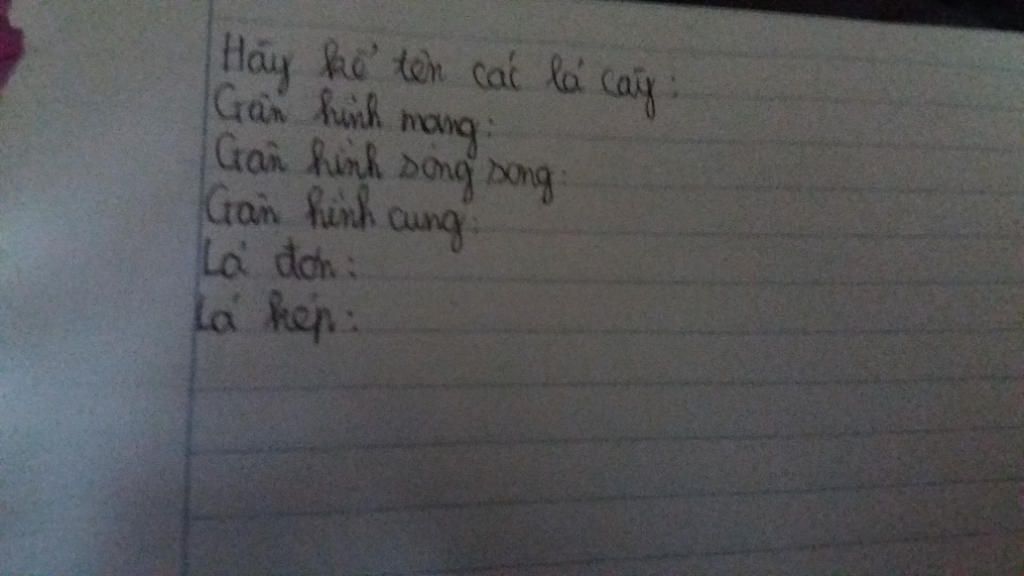 Hãy kể tên các lá cây:
Gân hình mạng:
Gân hình song song:
Gân hình cung:
Lá đơn:
Lá kép: